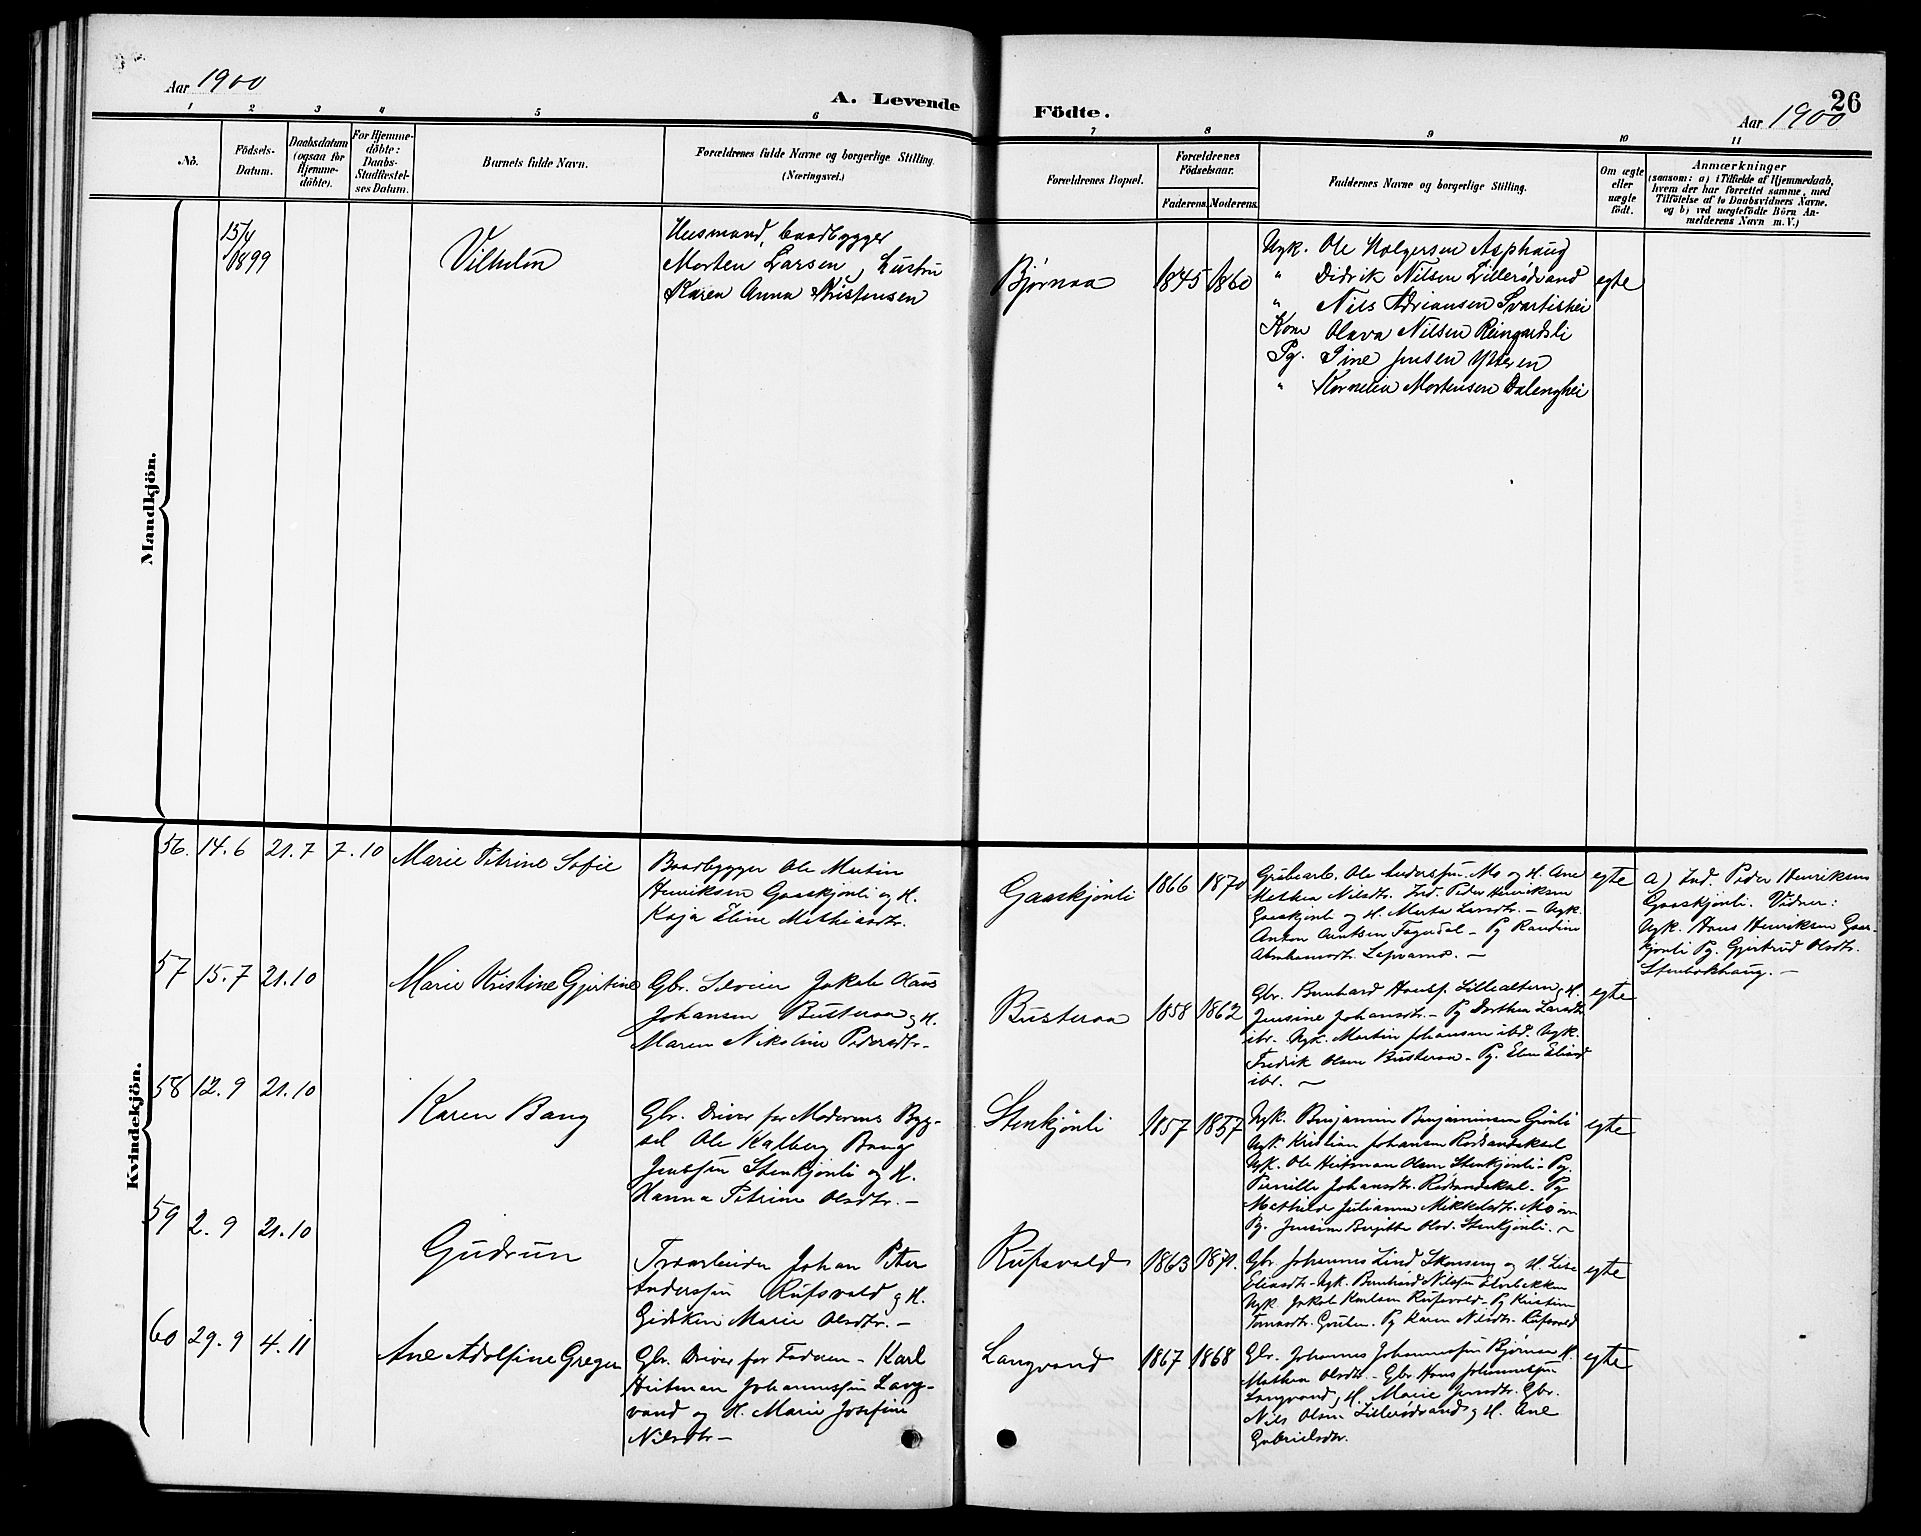 Aar 1900
A. Levende
Födte.
Aar 1900
26
1 2 3 4 5 6 7 8 9 10 11
No.
Födsels-
Datum.
Daabsdatum
(ogsaa for
Hjemme-
døbte).
For Hjemme-
døbte:
Daabs-
Stadfestel-
ses Datum.
Barnets fulde Navn.
Forældrenes fulde Navne og borgerlige Stilling.
(Næringsvei.)
Forældrenes Bopæl.
Forældrenes
Födselsaar.
Faderens. Moderens.
Faddernes Navne og borgerlige Stilling.
Om ægte
eller
uægte
födt.
Anmærkninger
(saasom: a) i Tilfælde af Hjemmedaab,
hvem der har forrettet samme, med
Tilföielse af to Daabsvidners Navne.
og b) ved uægtefödte Börn An-
melderens Navn m. V.)
Mandkjön.
15/4
1899
Vilhelm
Husmand, baadbygger
Morten Larsen, Hustru
Karen Anna Kristensen
Bjørnaa
1845 1860
Ugk. Ole Holgersen Asphaug
" Didrik Nilsen Lillerødvand
" Nils Adriansen Svartishei
Kone Olava Nilsen Reingardsli
Pg. Sine Jensen Ytteren
" Kornelia Mortensen Dalenghei
egte
Kvindekjön.
56. 14.6 21.7 7.10
Marie Petrine Sofie
Baadbygger Ole Martin
Henriksen Gaaskjønli og H.
Kaja Eline Mathiasdtr.
Gaaskjønli
1866 1870
Grubearb. Ole Anderssen Mo og H. Ane
Mathea Nilsdtr. Ind. Peder Henriksen
Gaaskjønli og H. Marta Larsdtr. – Ugk.
Anton Arntsen Fagerdal – Pg Randine
Abrahamsdtr.
egte
a) Ind. Peder Henriksen
Gaaskjønli. Vidner:
Ugk. Hans Henriksen Gaas-
kjønli Pg. Gjertrud Olsdtr.
Stenbekhaug. –
57 15.7 21.10
Marie Kristine Gjertine
Gbr. Selveier Jakob Hans
Johansen Busteraa og H.
Maren Nikoline Pedersdtr. –
Busteraa
1858 1862
Gbr. Bernhard Hansf. Lillealteren og H.
Jensine Johansdtr. – Pg Dorthea Larsdtr
ibr. Ugk. Martin Johansen ibd. Ugk.
Fredrik Olsen Busteraa – Pg. Elen Eliasd
ibr. –
egte
58 12.9 21.10
Karen Bang
Gbr. Driver for Moderens Byg-
sel Ole Kalberg Bang
Jenssen Stenkjønli og H.
Hanna Petrine Olsdtr. –
Stenkjønli
1857 1857
Ugk. Benjamin Benjaminsen Grønli
Ugk. Kristian Johansen Rødsandeksel
Ugk. Ole Heitman Olsen Stenkjønli – Pg.
Pernille Johansdtr. – Pg
Mathilde Julianne Mikkelsdtr.
Pg. Jensine Birgitte Olsd. Stenkjønli. –
egte
59 2.9 21.10
Gudrun
Johan Peter
Anderssen Rufsvold og H.
Gidsken Marie Olsdtr. –
Rufsvold
1863 1871.
Gbr. Johannes Lind Skonseng og H. Lise
Eliasdtr. – Ugk. Bernhard Nilssen
Ugk. Jakob Karlsen Rufsvold – Pg Kristine
Tomasdtr. Gruben. Pg Karen Nilsdtr. Rufsvold
egte
60 29.9 4.11
Ane Adolfine Greger
Gbr. Driver for Faderen – Karl
Heitman Johannessen Lang-
vand og H. Marie Josefine
Nilsdtr –
Langvand
1867 1868
Gbr. Johannes Johannessen Bjørnaa H.
Mathea Olsdtr. – Gbr Hans Johannessen
Langvand og H. Marie Jensdtr. Gbr.
Nils Olsen Lillerødvand og H. Ane
Gabrielsdtr.
egte